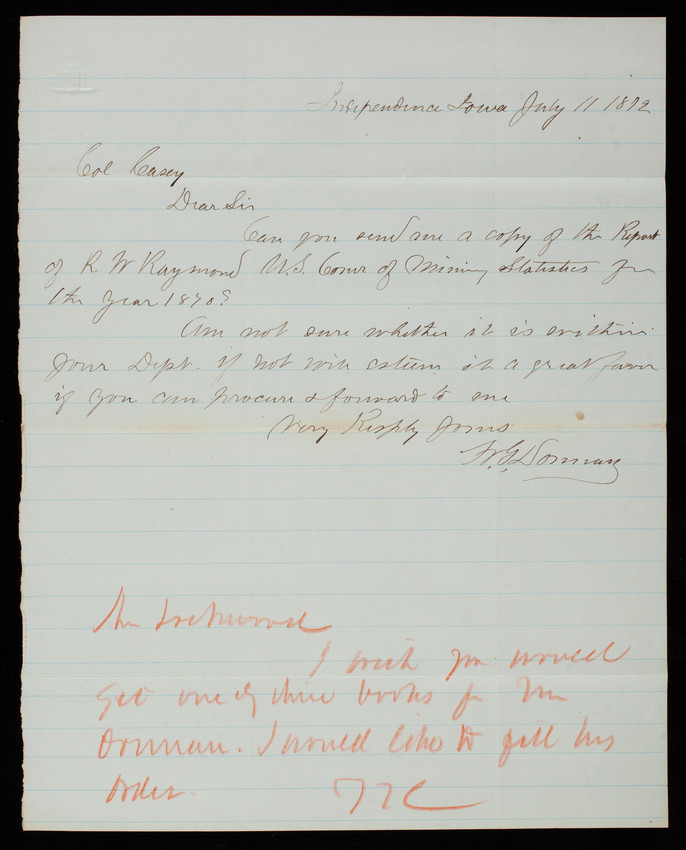 Independence Iowa July 11 1872
Col Casey
Dear Sir
Can you send me a copy of the Report
of R W Raymond U.S. Comr of Mining Statistics for
the year 1870?
Am not sure whether it is within
your Dept. if not will esteem it a great favor
if you can procure & forward to me
Very Respfly Yours
W. G. Donnan
Mr Lockwood
I wish you would
get one of these books for Mr
Donnan. I would like to fill his
order.
TLC